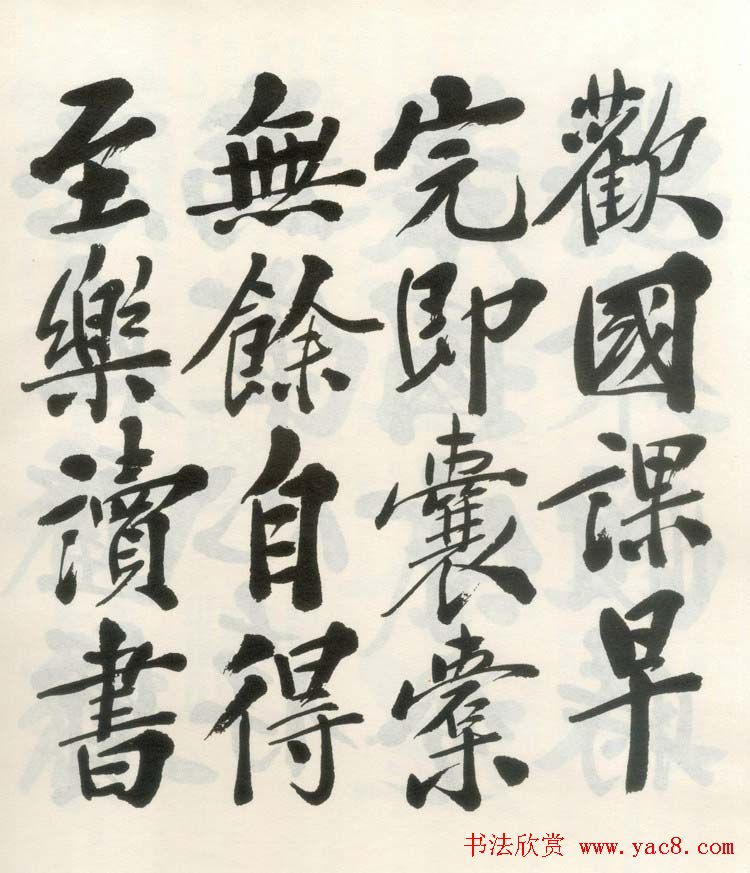 歡國課早
完即囊橐
無餘自得
至樂讀書
书法欣赏 www.yac8.com